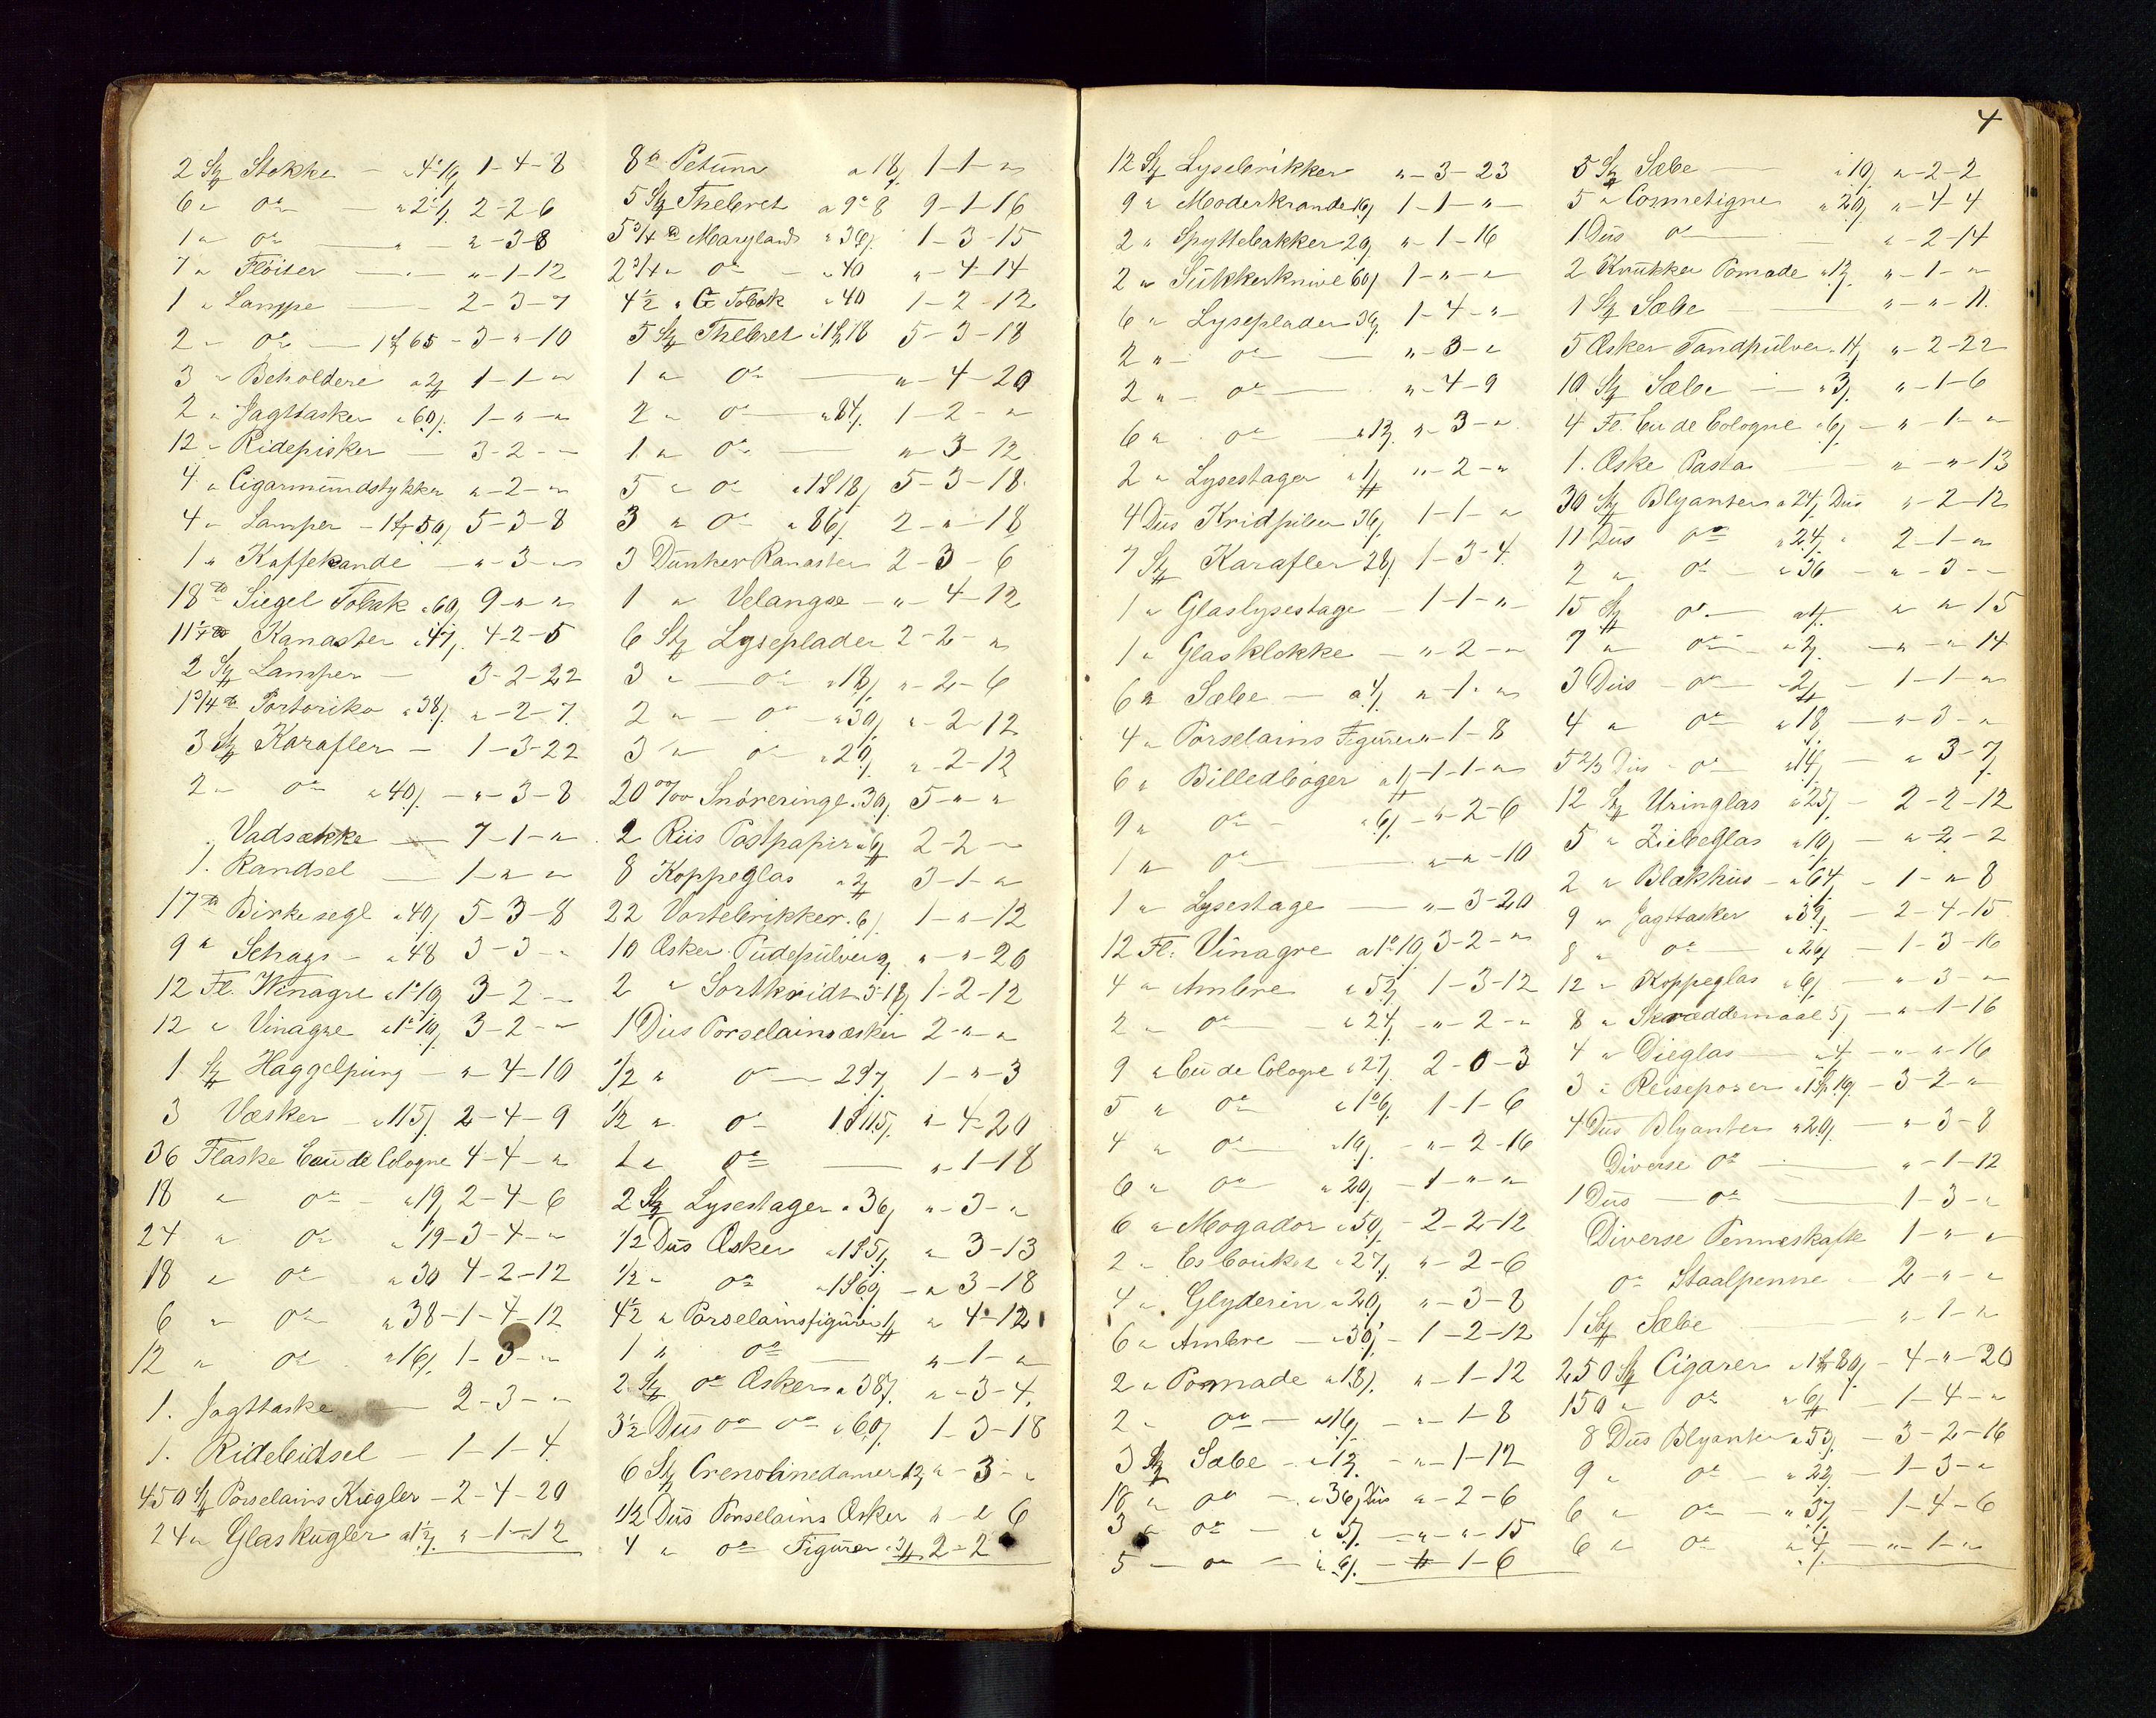 4
2 Stk Stokke — a 4 # 16 1-4-8
6 " Do — a 2 # 2-2-6
1 " Do — " — "-3-8
7 " Flöiter — "-1-12
1 " Lampe — 2-3-7
2 " Do — 1 Sp 65 - 3-"-10
3 " Beholdere a 2 # 1-1-"
2 " Jagttasker a 60 β 1-"-"
12 " Ridepisker — 3-2-"
4 " Cigarmundstykker "-2-"
4 " Lamper - 1 Sp 50 β 5-3-8
1 " Kaffekande — "-3-"
18 ℔ Siegel Tobak a 60 β 9-"-"
11 1/4 ℔ Kanaster a 47 β 4-2-5
2 Stk Lamper — 3-2-22
1 3/4 ℔ Portoriko a 38 β "-2-7
3 Stk Karafler — 1-3-22
2 " Do a 40 β — "-3-8
Vadsække — 7-1-"
1. Randsel — 1-"-"
17 ℔ Birkesegl a 40 β 5-3-8
9 " Schags - a 48 3-3-"
12 Fl. Winagre a 1 # 16 β 3-2-"
12 " Vinagre a 1 # 16 β 3-2-"
1 Stk Haggelpung — "-4-10
3 Væsker — a 115 β 2-4-9
36 Flaske Eau de Cologne 4-4-"
18 " Do — a 19 β 2-4-6
24 " Do a 19 - 3-4-"
18 " Do a 30 4-2-12
6 " Do a 38 - 1-4-12
12 " Do a 16 β 1-3-"
1. Jagttaske — 2-3-"
1. Ridebidsel — 1-1-4
450 Stk Porselains Kugler - 2-4-20
24 " Glaskugler a 1 1/2 β "-1-12
8 ℔ Petum a 18 β 1-1-"
5 Stk Thebret a 9 # 8 9-1-16
5 3/4 ℔ Maryland a 36 β 1-3-15
2 3/4 " Do - a 40 "-4-14
4 1/2 " G Tobak a 40 1-2-12
5 Stk Thebret a 1 Sp 18 5-3-18
1 " Do — "-4-20
2 " Do — a 84 β 1-2-"
1 " Do — "-3-12
5 " Do a 1 Sp 18 β 5-3-18
3 " Do a 86 β 2-"-18
3 Dunker Kanaster 2-3-6
1 " Velangse — "-4-12
6 Stk Lyseplader 2-2-"
3 " — Do a 18 β "-2-6
2 " — Do - a 30 β "-2-12
3 " Do a 20 β "-2-12
20 %00 Snöreringe a 30 β 5-"-"
2 Riis Postpapir a 6 # 2-2-"
8 Koppeglas a 2 # 3-1-"
22 Vortebrikker a 6 β 1-"-12
10 Æsker Pudepulver a 2 β "-"-20
2 " Sortkridt a 5-18 β 1-2-12
1 Dus Porselainsæsker 2-"-"
1/2 " Do — 2 Sp 7 β 1-"-3
1/2 " Do 1 Sp 115 β "-4-20
1 " Do — "-1-18
2 Stk Lysestager a 36 β "-3-"
1/2 Dus Æsker a 1 Sp 5 β "-3-13
1/2 " Do a 1 Sp 60 β - "-3-18
4 1/2 " Porselainsfigurer 1 # "-4-12
1 " Do — "-1-"
2 Stk Do Æsker a 38 β "-3-4
3 1/2 Dus Do Do a 60 β 1-3-18
6 Stk Crenolinedamer 12 β "-3-"
1/2 Dus Porselains Æsker "-"-6
4 " Do Figurer a 3 # 2-2
12 Stk Lysebrikker "-3-23
9 " Moderkrande 16 β 1-1-"
2 " Spyttebakker 20 β "-1-16
2 " Sukkerknive 60 β 1-"-"
6 " Lyseplader 36 β 1-4-"
2 " Do — "-3-"
2 " Do — "-4-9
6 " Do — a 12 β "-3-"
2 " Lysestager a 1 # "-2-"
4 Dus Kridpiber 36 β 1-1-"
7 Stk Karafler 28 β 1-3-4
1 " Glaslysestage — 1-1-"
1 " Glasklokke — "-2-"
6 " Sæbe — a 4 β "-1-"
4 " Porselains Figurer "-1-8
6 " Billedböger a 1 # 1-1-"
9 " Do — a 6 β - "-2-6
1 " Do — "-"-10
1 " Lysestage — "-3-20
12 Fl. Vinagre a 1 # 16 β 3-2-"
4 " Ambre a 52 β 1-3-12
2 " Do a 24 β - "-2-"
9 " Eu de Cologne a 27 β 2-0-3
5 " Do a 1 # 6 β 1-1-6
4 " Do a 16 β - "-2-16
6 " Do a 20 β - 1-"-"
6 " Mogador a 50 β - 2-2-12
2 " Es bouket a 27 β "-2-6
4 " Glyderin a 20 β "-3-8
6 " Ambre — a 30 β - 1-2-12
2 " Pomade a 18 β "-1-12
2 " Do — a 16 β - "-1-8
3 Stk Sæbe - a 12 β - "-1-12
18 " Do — a 36 β Dus "-2-6
3 " Do — a 5 β — "-"-15
5 — Do — a 6 β - "-1-6
5 Stk Sæbe — a 10 β "-2-2
5 " Cosmetigne a 20 β "-4-4
1 Dus Do — "-2-14
2 Krukker Pomade a 12 β "-1-"
1 Stk Sæbe — "-"-11
5 Æsker Tandpulver a 14 β "-2-22
10 Stk Sæbe — a 3 β "-1-6
4 Fl. Eu de Cologne a 6 β — "-1-"
1. Æske Pasta "-"-13
30 Stk Blyanter a 24 β Dus "-2-12
11 Dus Do a 24 β " 2-1-"
2 " Do — a 36 - "-3-"
15 Stk Do — a 1 β "-"-15
7 " Do — a 2 β — "-"-14
3 Dus - Do — a 2 # - 1-1-"
4 " Do a 18 — "-3-"
5 2/3 Dus - Do a 14 β — "-3-7
12 Stk Uringlas a 25 β - 2-2-12
5 " Ziebeglas a 10 β — "-2-2
2 " Blækhus - a 64 β - 1-"-8
9 " Jagttasker a 39 β — 2-4-15
8 " Do — a 26 β — 1-3-16
12 " Koppeglas a 6 β — "-3-"
8 " Skræddemaal 5 β — "-1-16
4 " Dieglas — a 4 β — "-"-16
3 " Reiseposer a 1 Sp 16 β - 3-2-"
4 Dus Blyanter a 20 β — "-3-8
Diverse Do — "-1-12
1 Dus — Do — 1-3-"
Diverse Penneskafte 1-"-"
Do Staalpenne 2-"-"
1 Stk Sæbe — "-1-"
250 Stk Cigarer a 1 Sp 80 β - 4-"-20
150 " Do a 6 # - 1-4-"
8 Dus Blyanter a 53 β - 3-2-16
9 " Do — a 22 β - 1-3-"
6 " Do — a 37 β - 1-4-6
6 " Do a 4 β — "-1-"